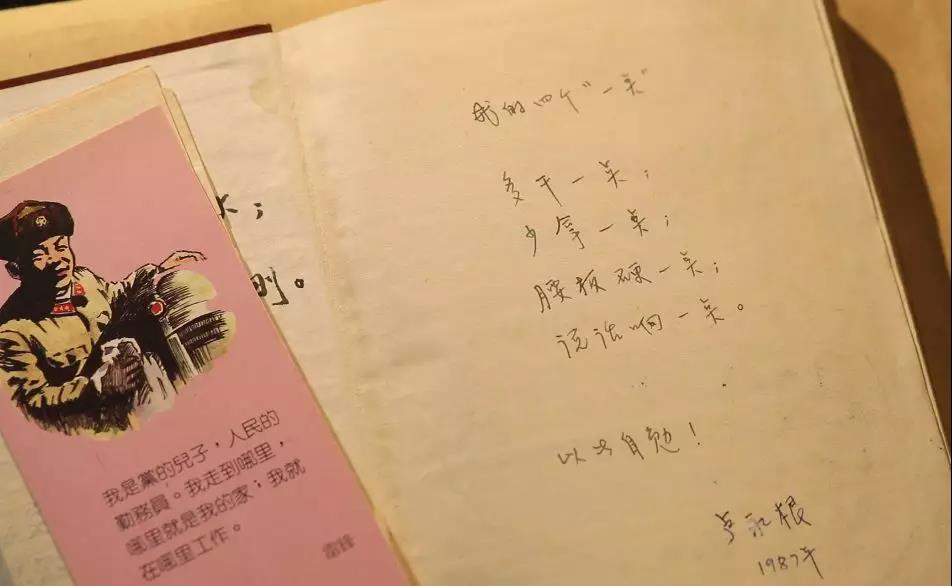 我是黨的兒子，人民的
勤務員。我走到哪里，
哪里就是我的家；我就
在哪里工作。
雷鋒
的。
我的四个“一点”
多干一点；
少拿一点；
腰板硬一点；
说话响一点。
以此自勉！
卢永根
1987年